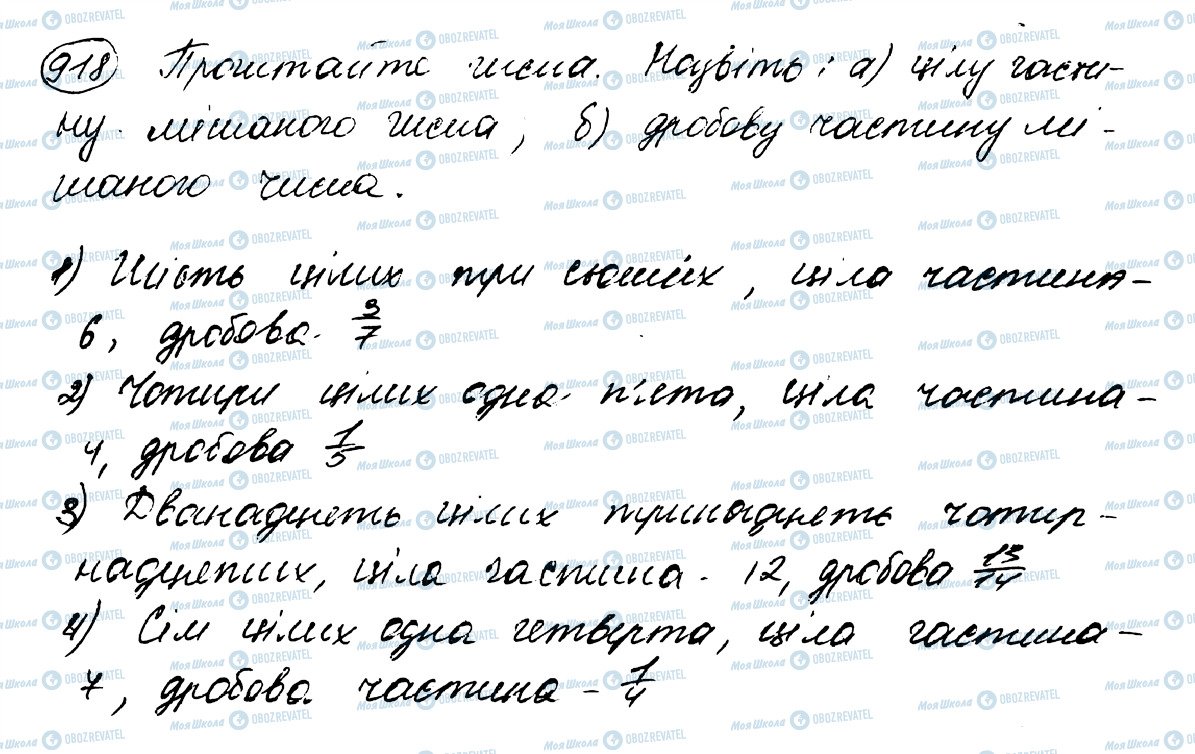 918 Прочитайте числа. Назвіть: а) цілу части-
ну мішаного числа, б) дробову частину мі-
шаного числа.
1) Шість цілих три сьомих, ціла частина -
6, дробова 3/7
2) Чотири цілих одна п'ята, ціла частина -
4, дробова 1/5
3) Дванадцять цілих тринадцять чотир-
надцятих, ціла частина - 12, дробова 13/14
4) Сім цілих одна четверта, ціла частина -
7, дробова частина - 1/4
Моя Школа OBOZREVATEL